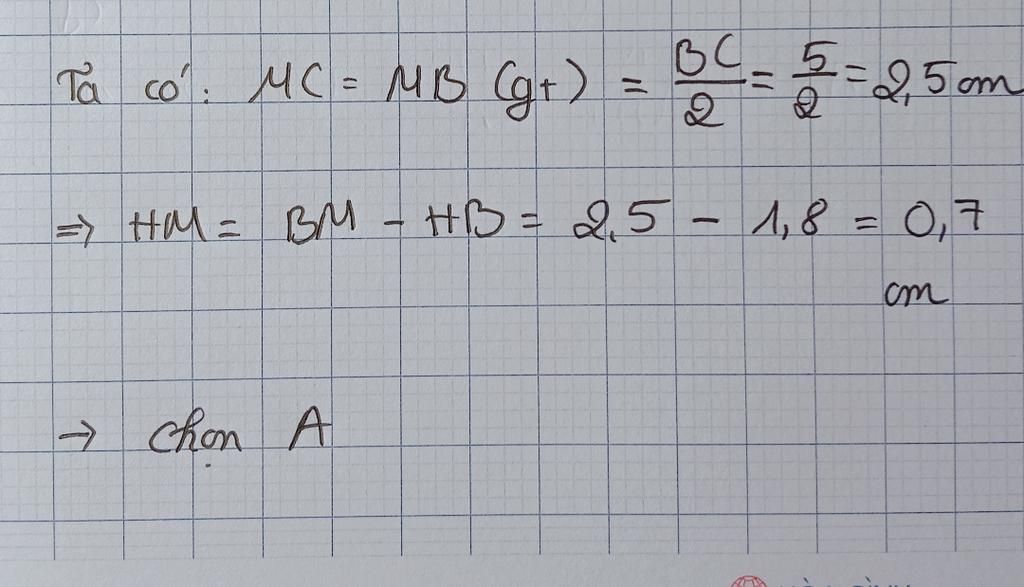 Ta có: MC = MB (gt) = BC/2 = 5/2 = 2,5 cm
=> HM = BM - HB = 2,5 - 1,8 = 0,7
cm
→ Chọn A